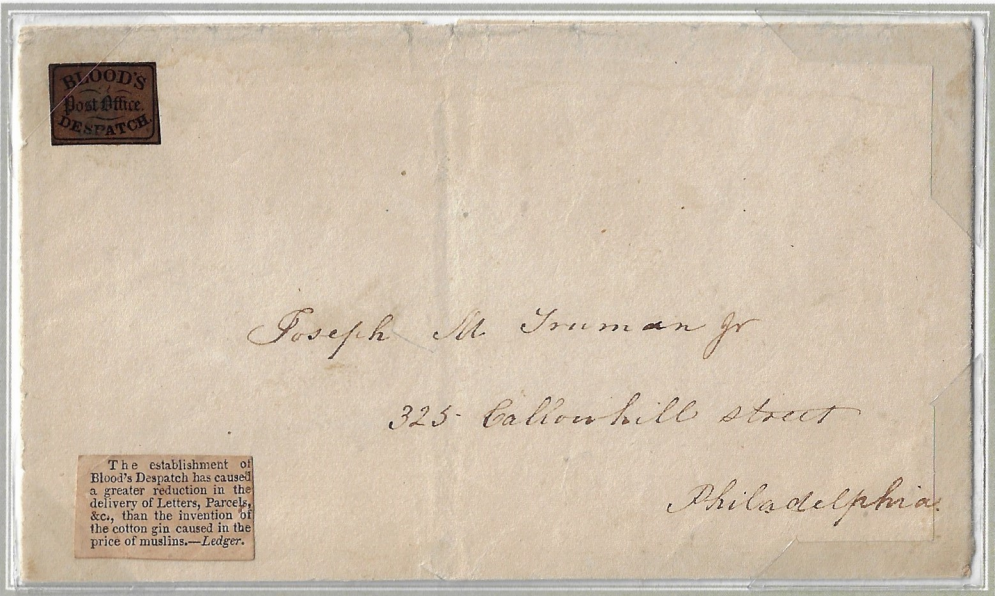 BLOOD'S
Post Office.
DESPATCH.
Joseph M Truman Jr
325 Callowhill street
Philadelphia.
The establishment of
Blood's Despatch has caused
a greater reduction in the
delivery of Letters, Parcels,
&c., than the invention of
the cotton gin caused in the
price of muslins.—Ledger.